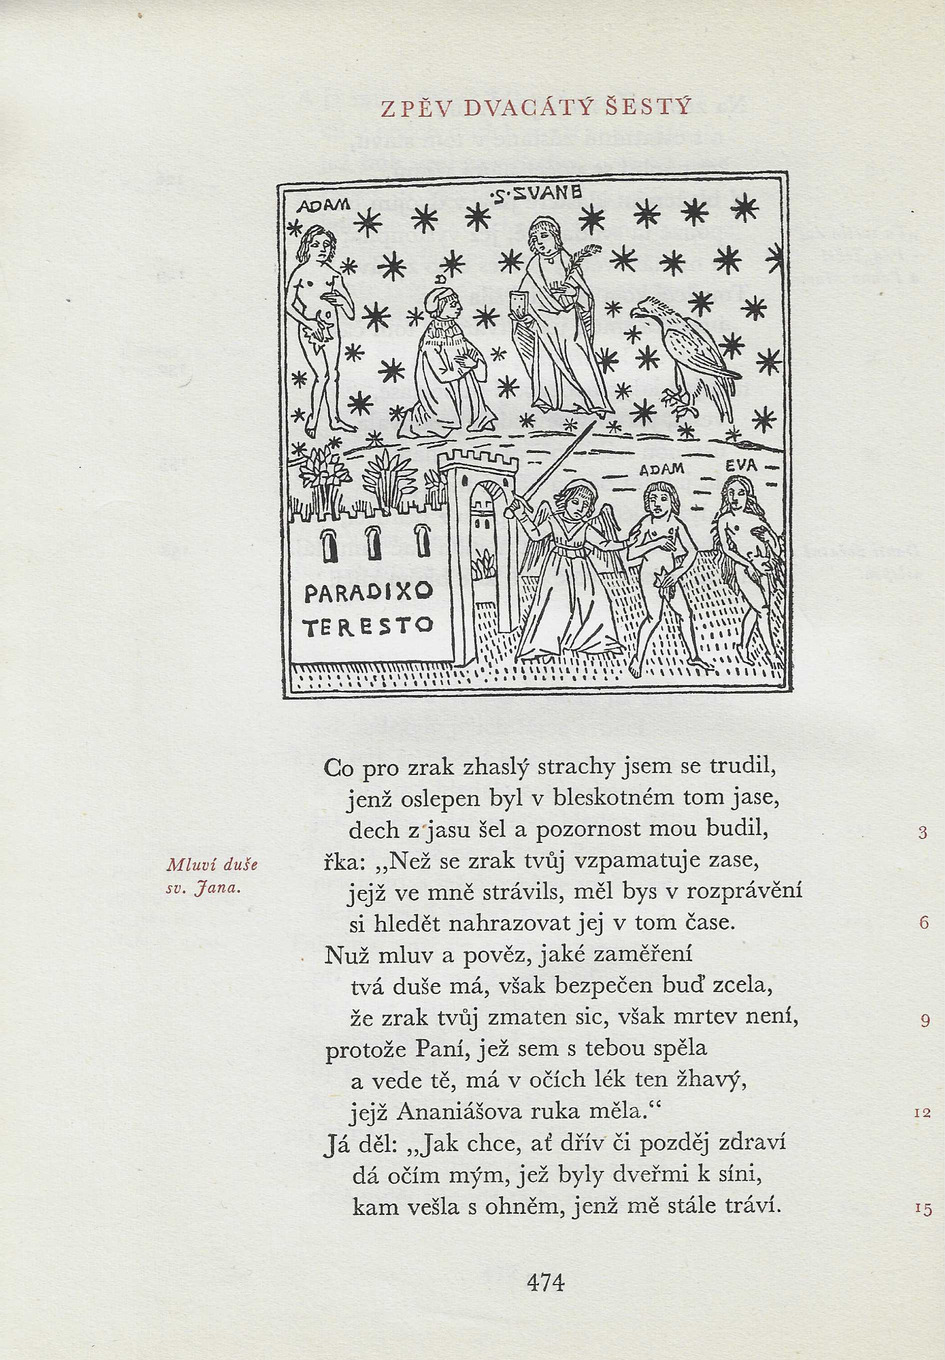 ZPĚV DVACÁTÝ ŠESTÝ
ADAM
·S·ZVANE
D
ADAM
EVA
PARADIXO
TERESTO
Co pro zrak zhaslý strachy jsem se trudil,
jenž oslepen byl v bleskotném tom jase,
dech z jasu šel a pozornost mou budil,
3
Mluví duše
sv. Jana.
řka: „Než se zrak tvůj vzpamatuje zase,
jejž ve mně strávils, měl bys v rozprávění
si hledět nahrazovat jej v tom čase.
6
Nuž mluv a pověz, jaké zaměření
tvá duše má, však bezpečen buď zcela,
že zrak tvůj zmaten sic, však mrtev není,
9
protože Paní, jež sem s tebou spěla
a vede tě, má v očích lék ten žhavý,
jejž Ananiášova ruka měla.“
12
Já děl: „Jak chce, ať dřív či pozděj zdraví
dá očím mým, jež byly dveřmi k síni,
kam vešla s ohněm, jenž mě stále tráví.
15
474